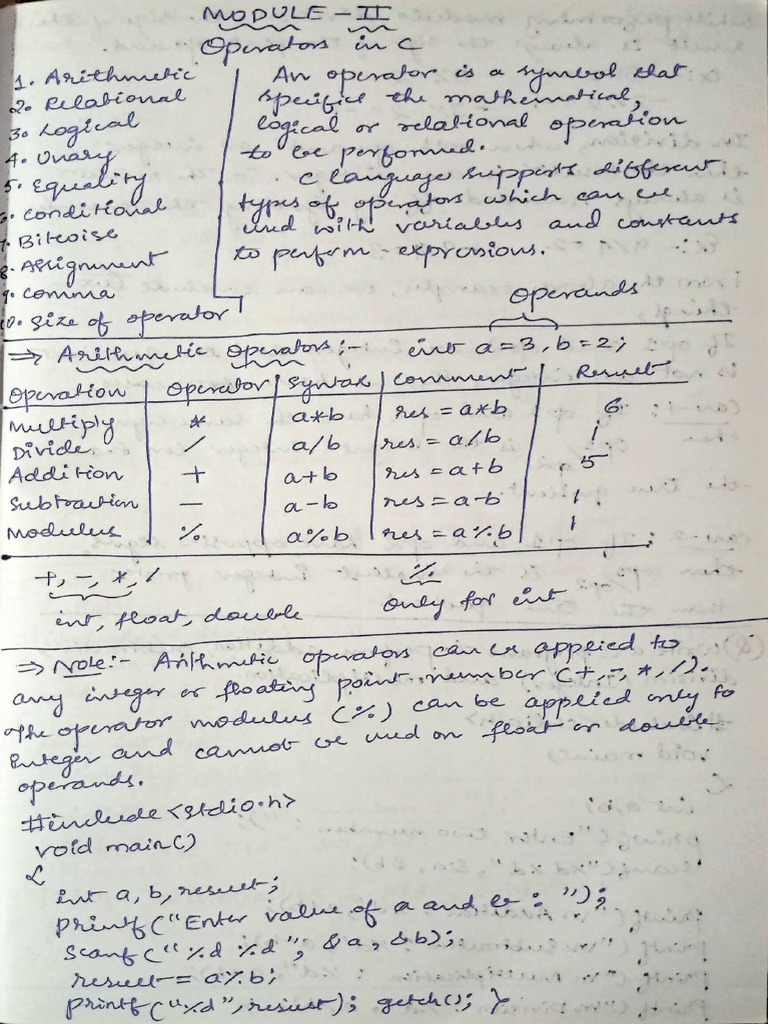 MODULE - II
Operators in C
1. Arithmetic
2. Relational
3. Logical
4. Unary
5. Equality
6. Conditional
7. Bitwise
8. Assignment
9. Comma
10. Size of operator
An operator is a symbol that
specifies the mathematical,
logical or relational operation
to be performed.
C language supports different
types of operators which can be
used with variables and constants
to perform expressions.
Operands
⇒ Arithmetic Operators :- int a=3, b=2;
Operation | Operator | Syntax | Comment | Result
Multiply | * | a*b | res = a*b | 6
Divide | / | a/b | res = a/b | 1
Addition | + | a+b | res = a+b | 5
Subtraction | - | a-b | res = a-b | 1
Modulus | % | a%b | res = a%b | 1
+, -, *, / %
int, float, double only for int
⇒ Note:- Arithmetic operators can be applied to
any integer or floating point number (+, -, *, /).
The operator modulus (%) can be applied only to
Integer and cannot be used on float or double
operands.
#include <stdio.h>
void main()
{
int a, b, result;
printf("Enter value of a and b : ");
scanf("%d %d", &a, &b);
result = a%b;
printf("%d", result); getch(); }